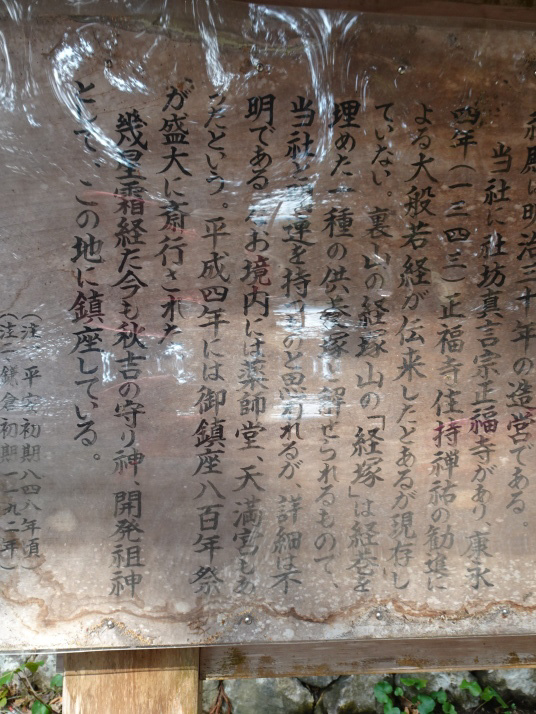 社殿は明治三十年の造営である。
当社に社坊真言宗正福寺があり、康永
四年(一三四三)正福寺住持禅祐の勧進に
よる大般若経が伝来したとあるが現存し
ていない。裏山の経塚山の「経塚」は経巻を
埋めた一種の供養塚と解せられるもので、
当社と関連を持つものと思われるが、詳細は不
明である。なお境内には薬師堂、天満宮もあ
ったという。平成四年には御鎮座八百年祭
が盛大に斎行された
幾星霜経た今も秋吉の守り神、開発祖神
として、この地に鎮座している。
(注一平安初期八四八年頃)
(注二鎌倉初期一一九二年)